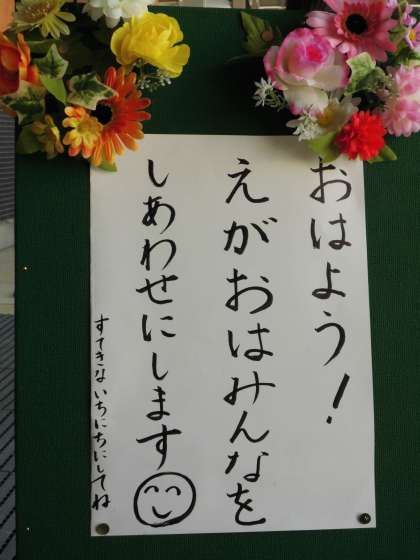 おはよう!
えがおはみんなを
しあわせにします
すてきないちにちにしてね